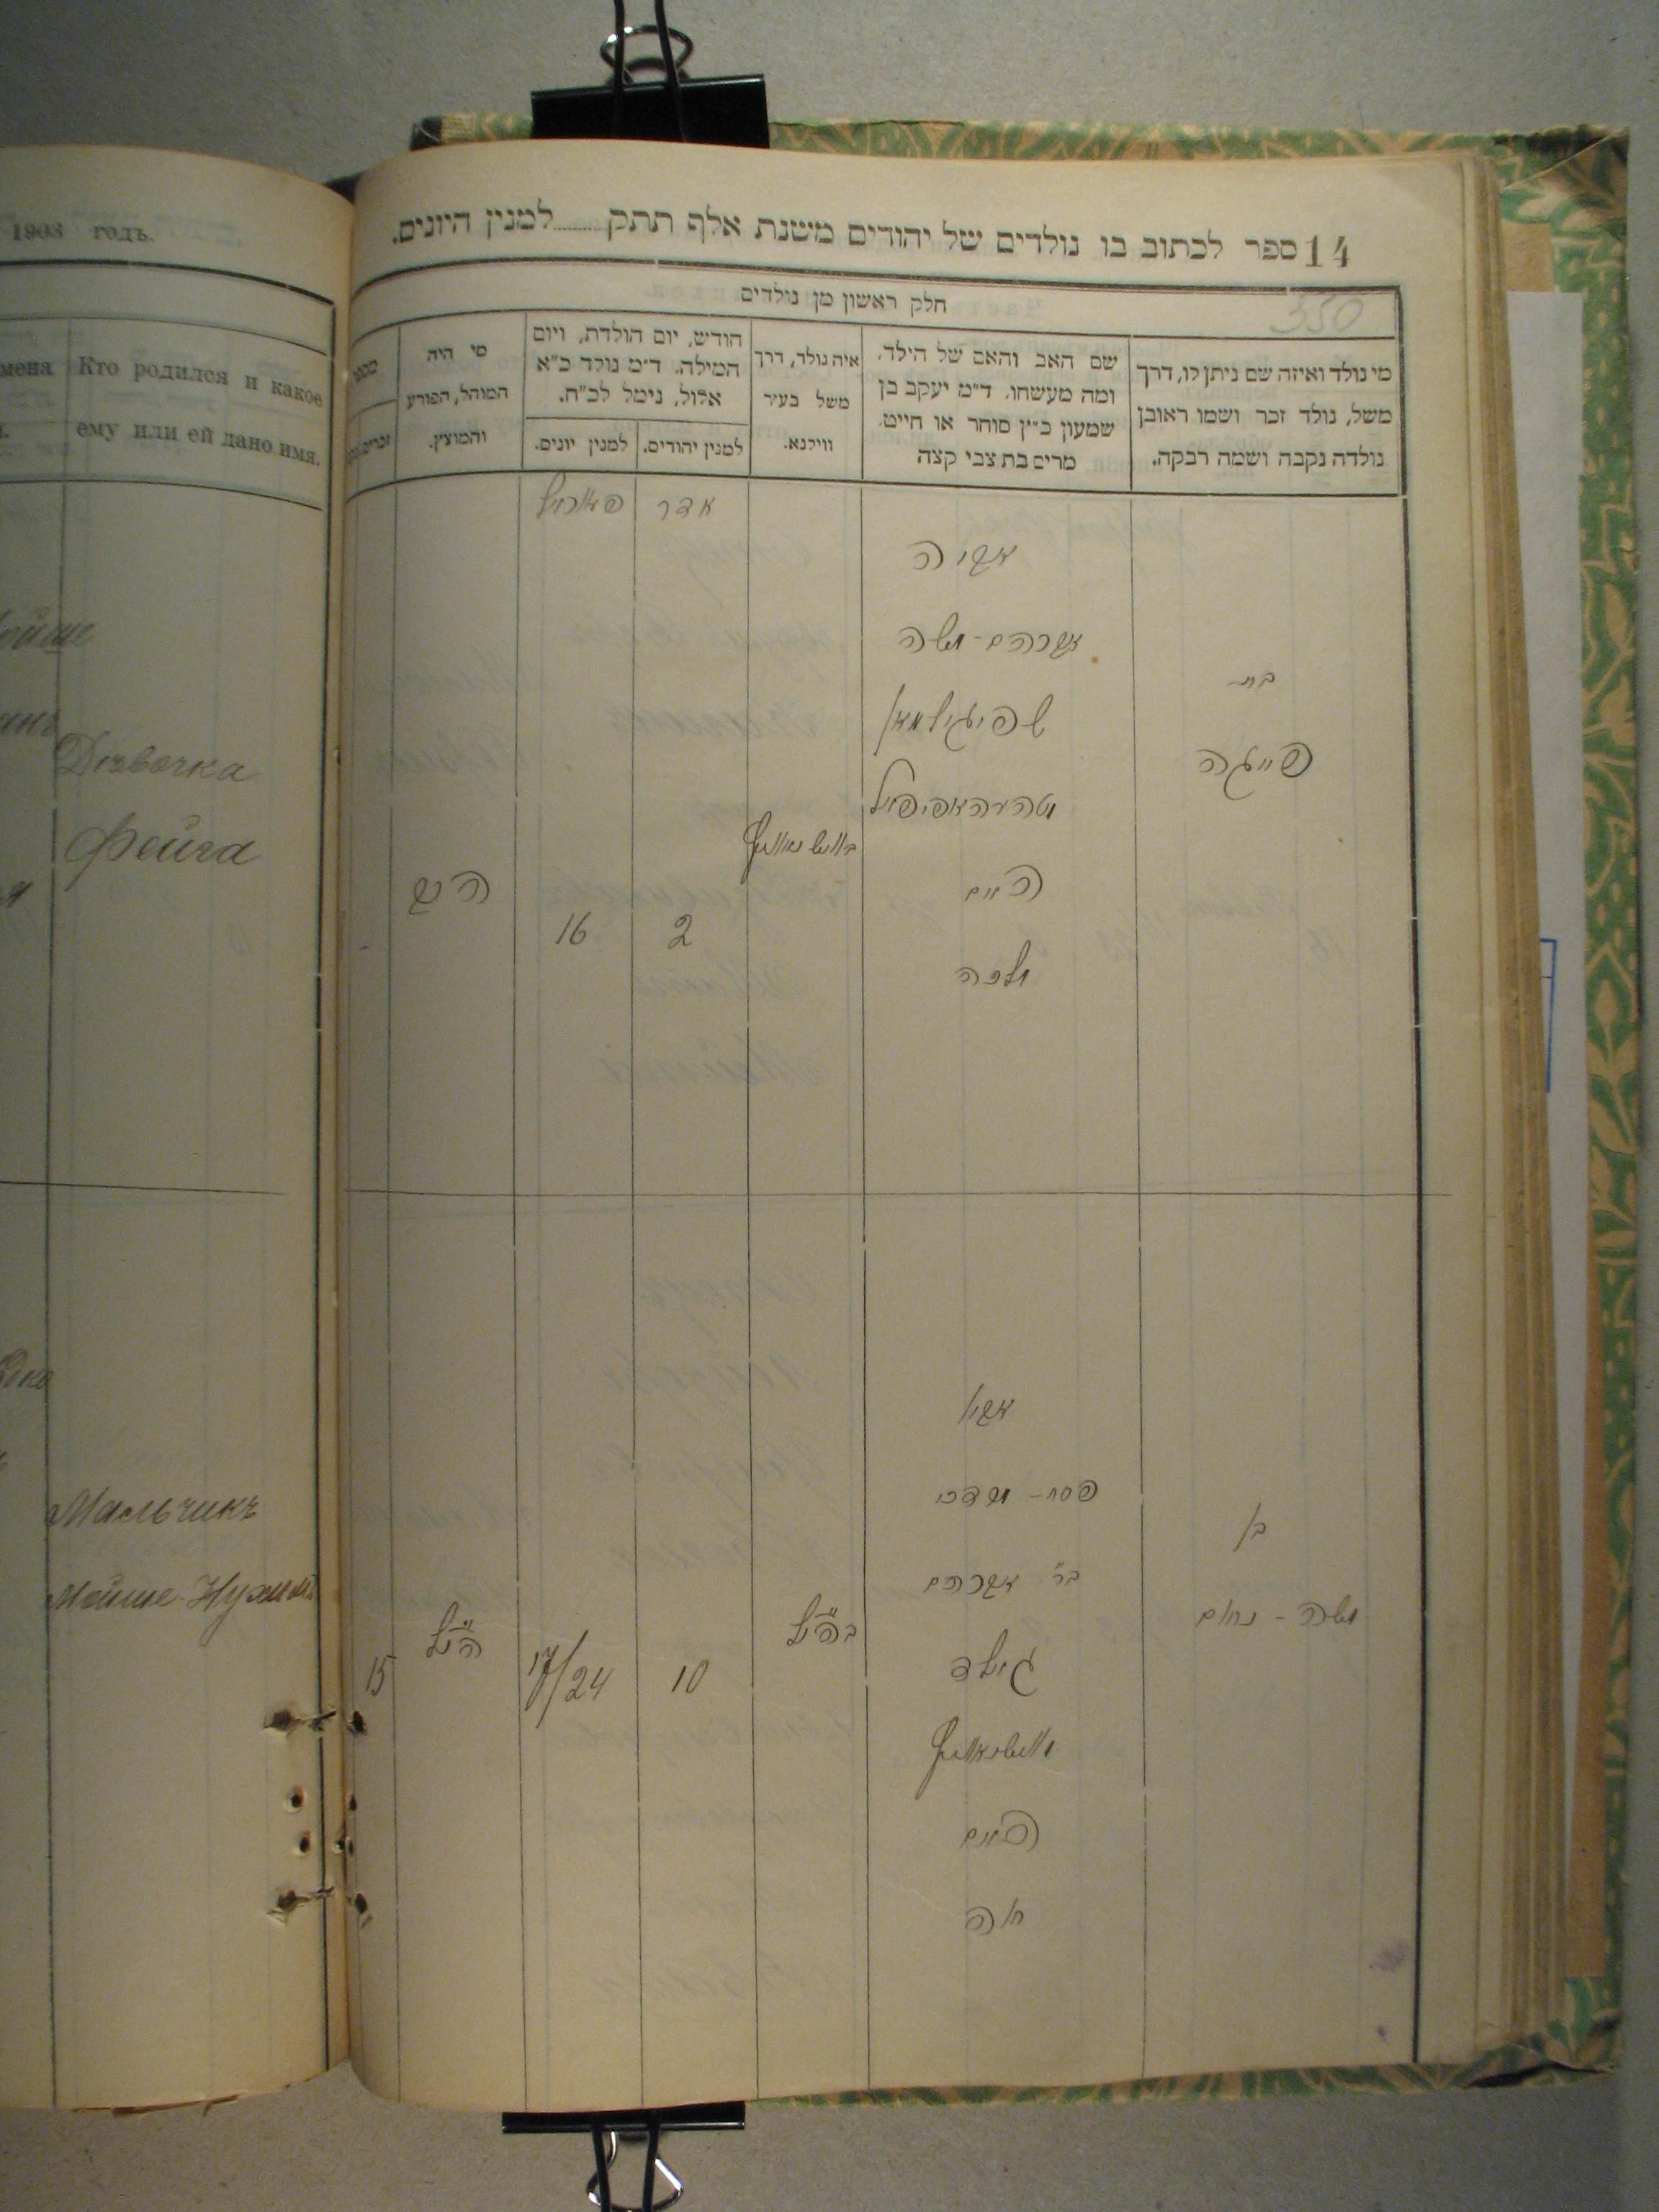 1903 годъ.
мена
Кто родился и какое
ему или ей дано имя.
Дѣвочка
Фейга
Мальчикъ
Мойше-Нухимъ
14 ספר לכתוב בו נולדים של יהודים משנת אלף תתק למנין היונים.
350
חלק ראשון מן נולדים
מי נולד ואיזה שם ניתן לו, דרך
משל, נולד זכר ושמו ראובן
נולדה נקבה ושמה רבקה.
שם האב והאם של הילד,
ומה מעשהו. ד״מ יעקב בן
שמעון כ״ץ סוחר או חייט,
מרים בת צבי קצה
איה נולד, דרך
משל בעיר
ווילנא.
חודש, יום הולדת, ויום
המילה. ד״מ נולד כ״א
אלול, נימל לכ״ח.
למנין יהודים.
למנין יונים.
מי היה
המוהל, הפורע
והמוצץ.
אדר
אביה
אברהם-משה
שפיגילמאן
האם
מלכה
בת
פייגה
2
16
הרב
אביו
פסח-מרדכי
בר אברהם
גולד
האם
חוה
בן
משה-נחום
בהנ״ל
10
17/24
הנ״ל
15